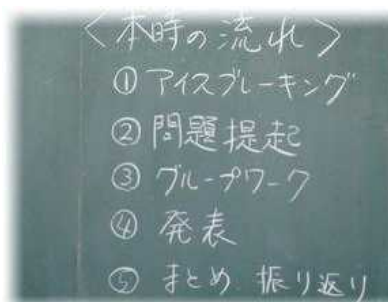 <本時の流れ>
① アイスブレーキング
② 問題提起
③ グループワーク
④ 発表
⑤ まとめ 振り返り